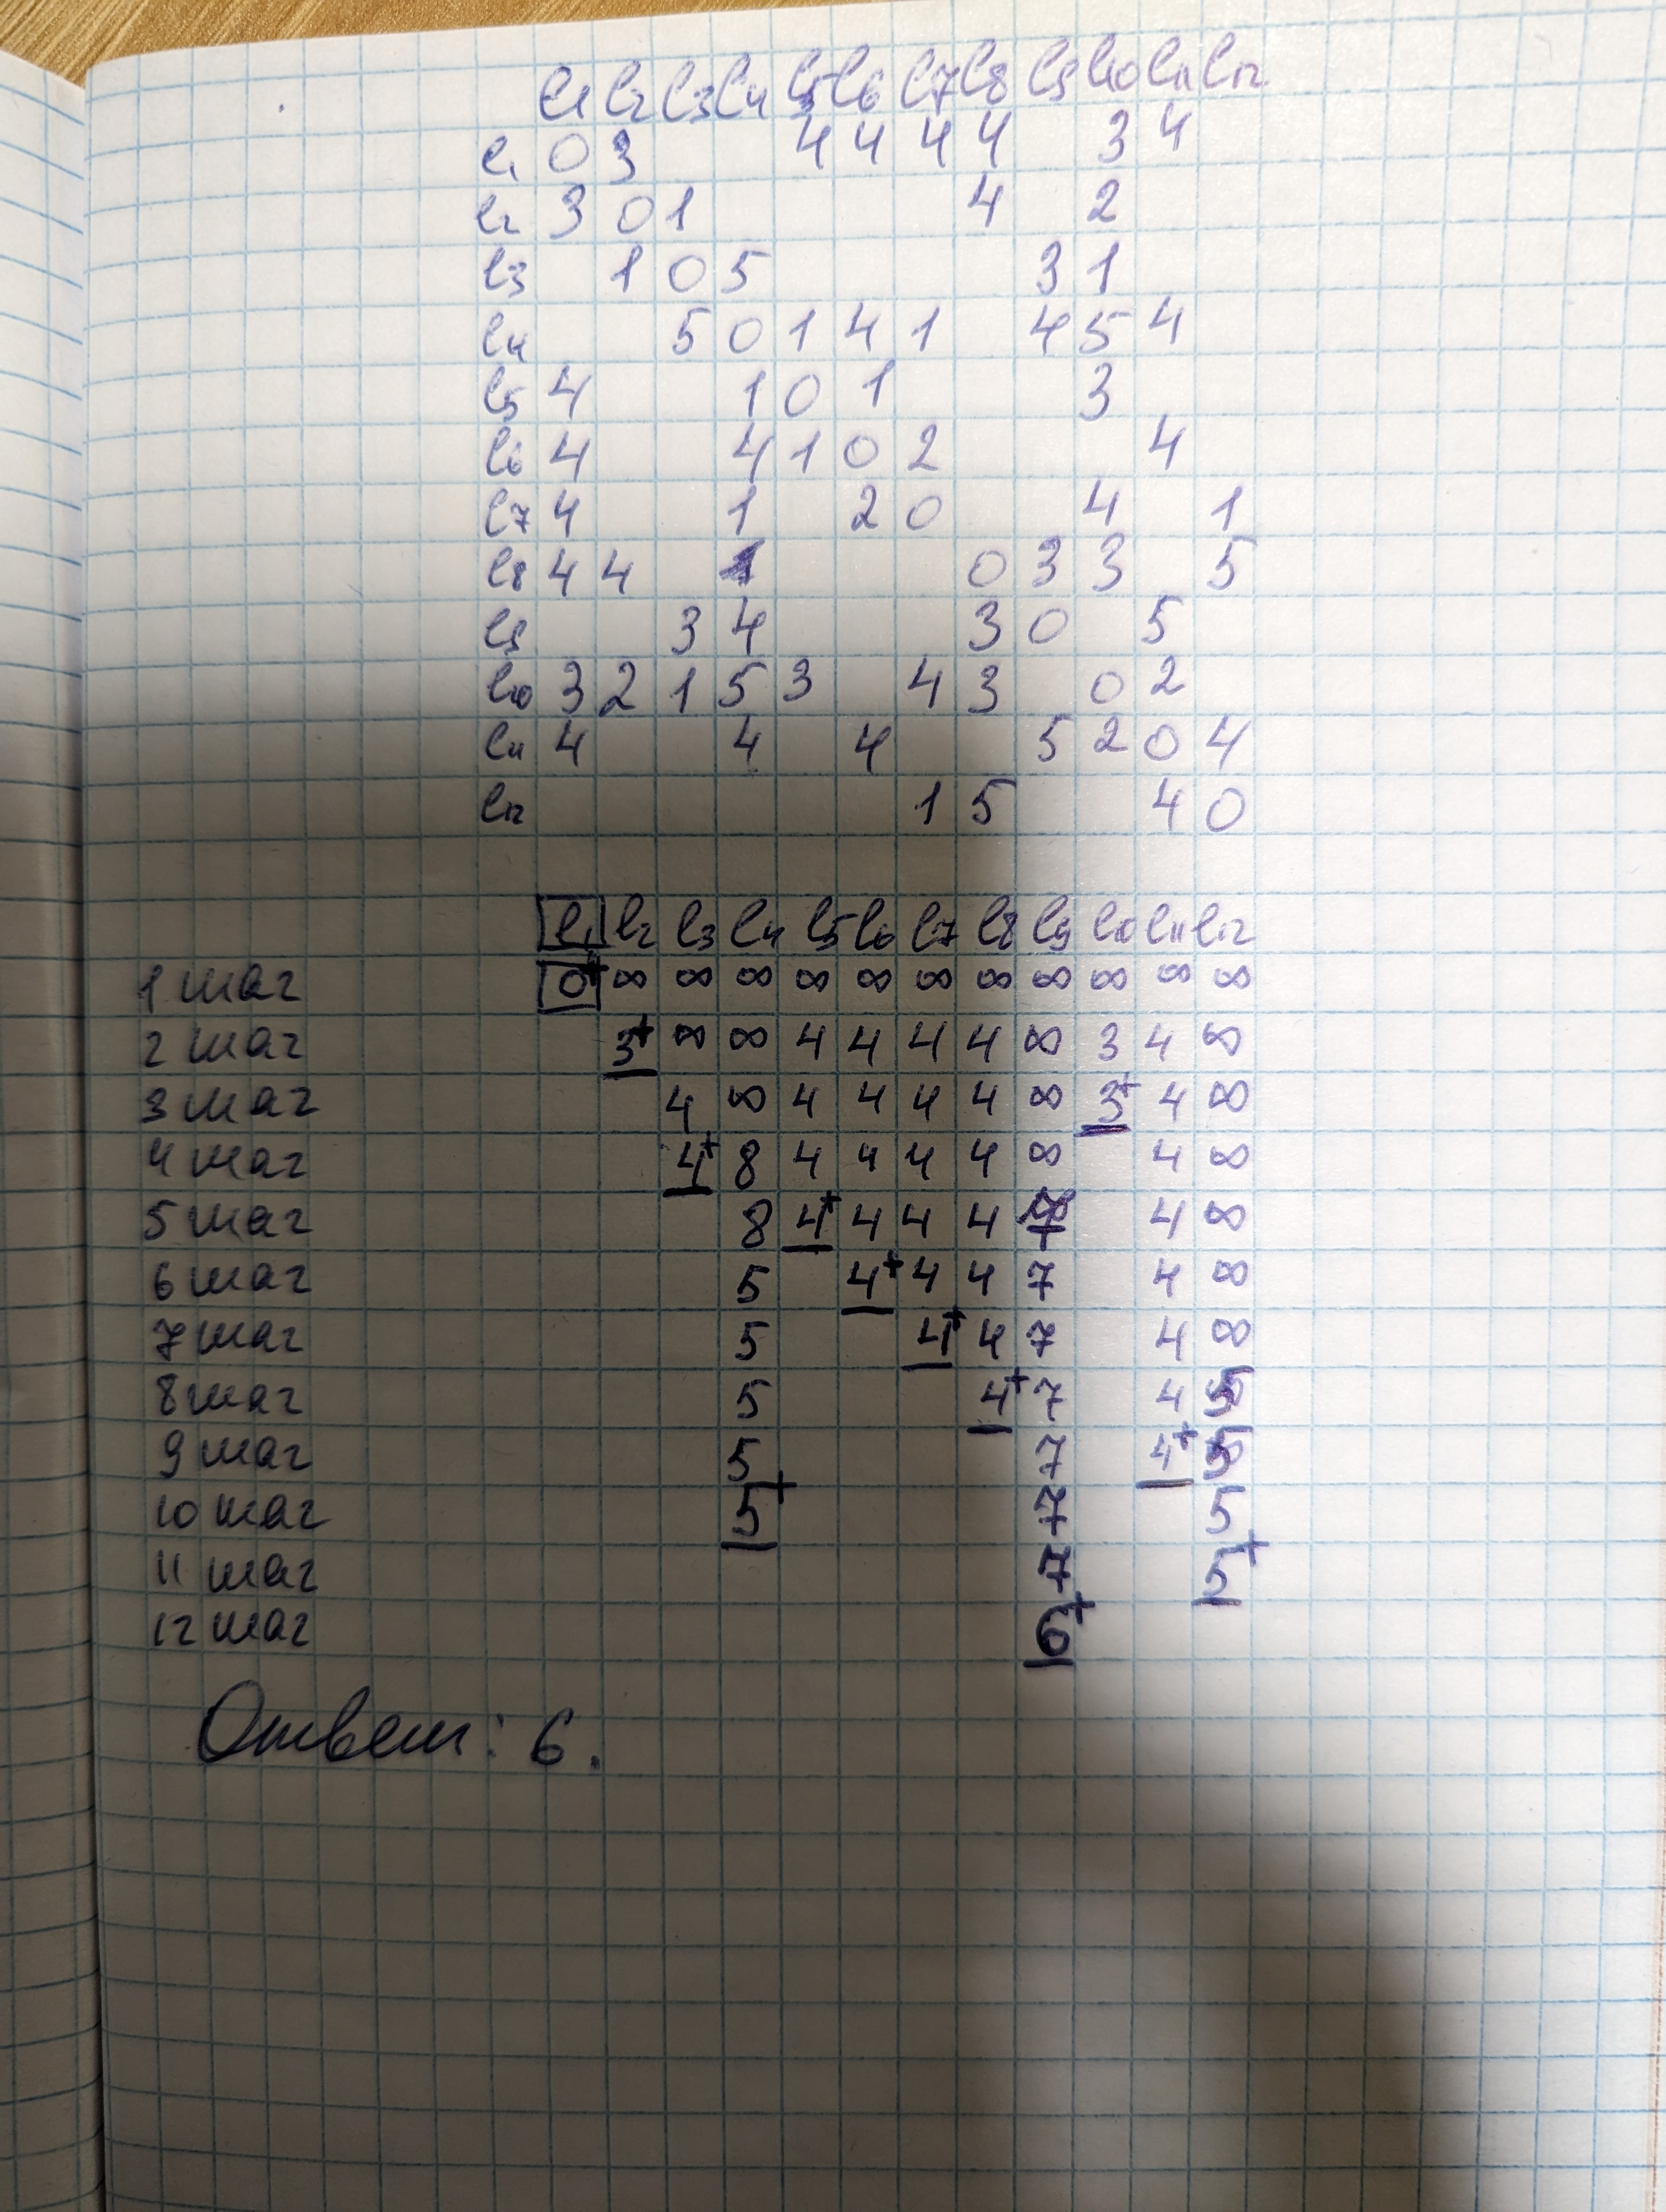 e1 e2 e3 e4 e5 e6 e7 e8 e9 e10 e11 e12
e1 0 3 4 4 4 4 3 4
e2 3 0 1 4 2
e3 1 0 5 3 1
e4 5 0 1 4 1 4 5 4
e5 4 1 0 1 3
e6 4 4 1 0 2 4
e7 4 1 2 0 4 1
e8 4 4 0 3 3 5
e9 3 4 3 0 5
e10 3 2 1 5 3 4 3 0 2
e11 4 4 4 5 2 0 4
e12 1 5 4 0
e1 e2 e3 e4 e5 e6 e7 e8 e9 e10 e11 e12
1 шаг 0+ ∞ ∞ ∞ ∞ ∞ ∞ ∞ ∞ ∞ ∞ ∞
2 шаг 3+ ∞ ∞ 4 4 4 4 ∞ 3 4 ∞
3 шаг 4 ∞ 4 4 4 4 ∞ 3+ 4 ∞
4 шаг 4+ 8 4 4 4 4 ∞ 4 ∞
5 шаг 8 4+ 4 4 4 7 4 ∞
6 шаг 5 4+ 4 4 7 4 ∞
7 шаг 5 4+ 4 7 4 ∞
8 шаг 5 4+ 7 4 5
9 шаг 5 7 4+ 5
10 шаг 5+ 7 5
11 шаг 7 5+
12 шаг 6+
Ответ: 6.